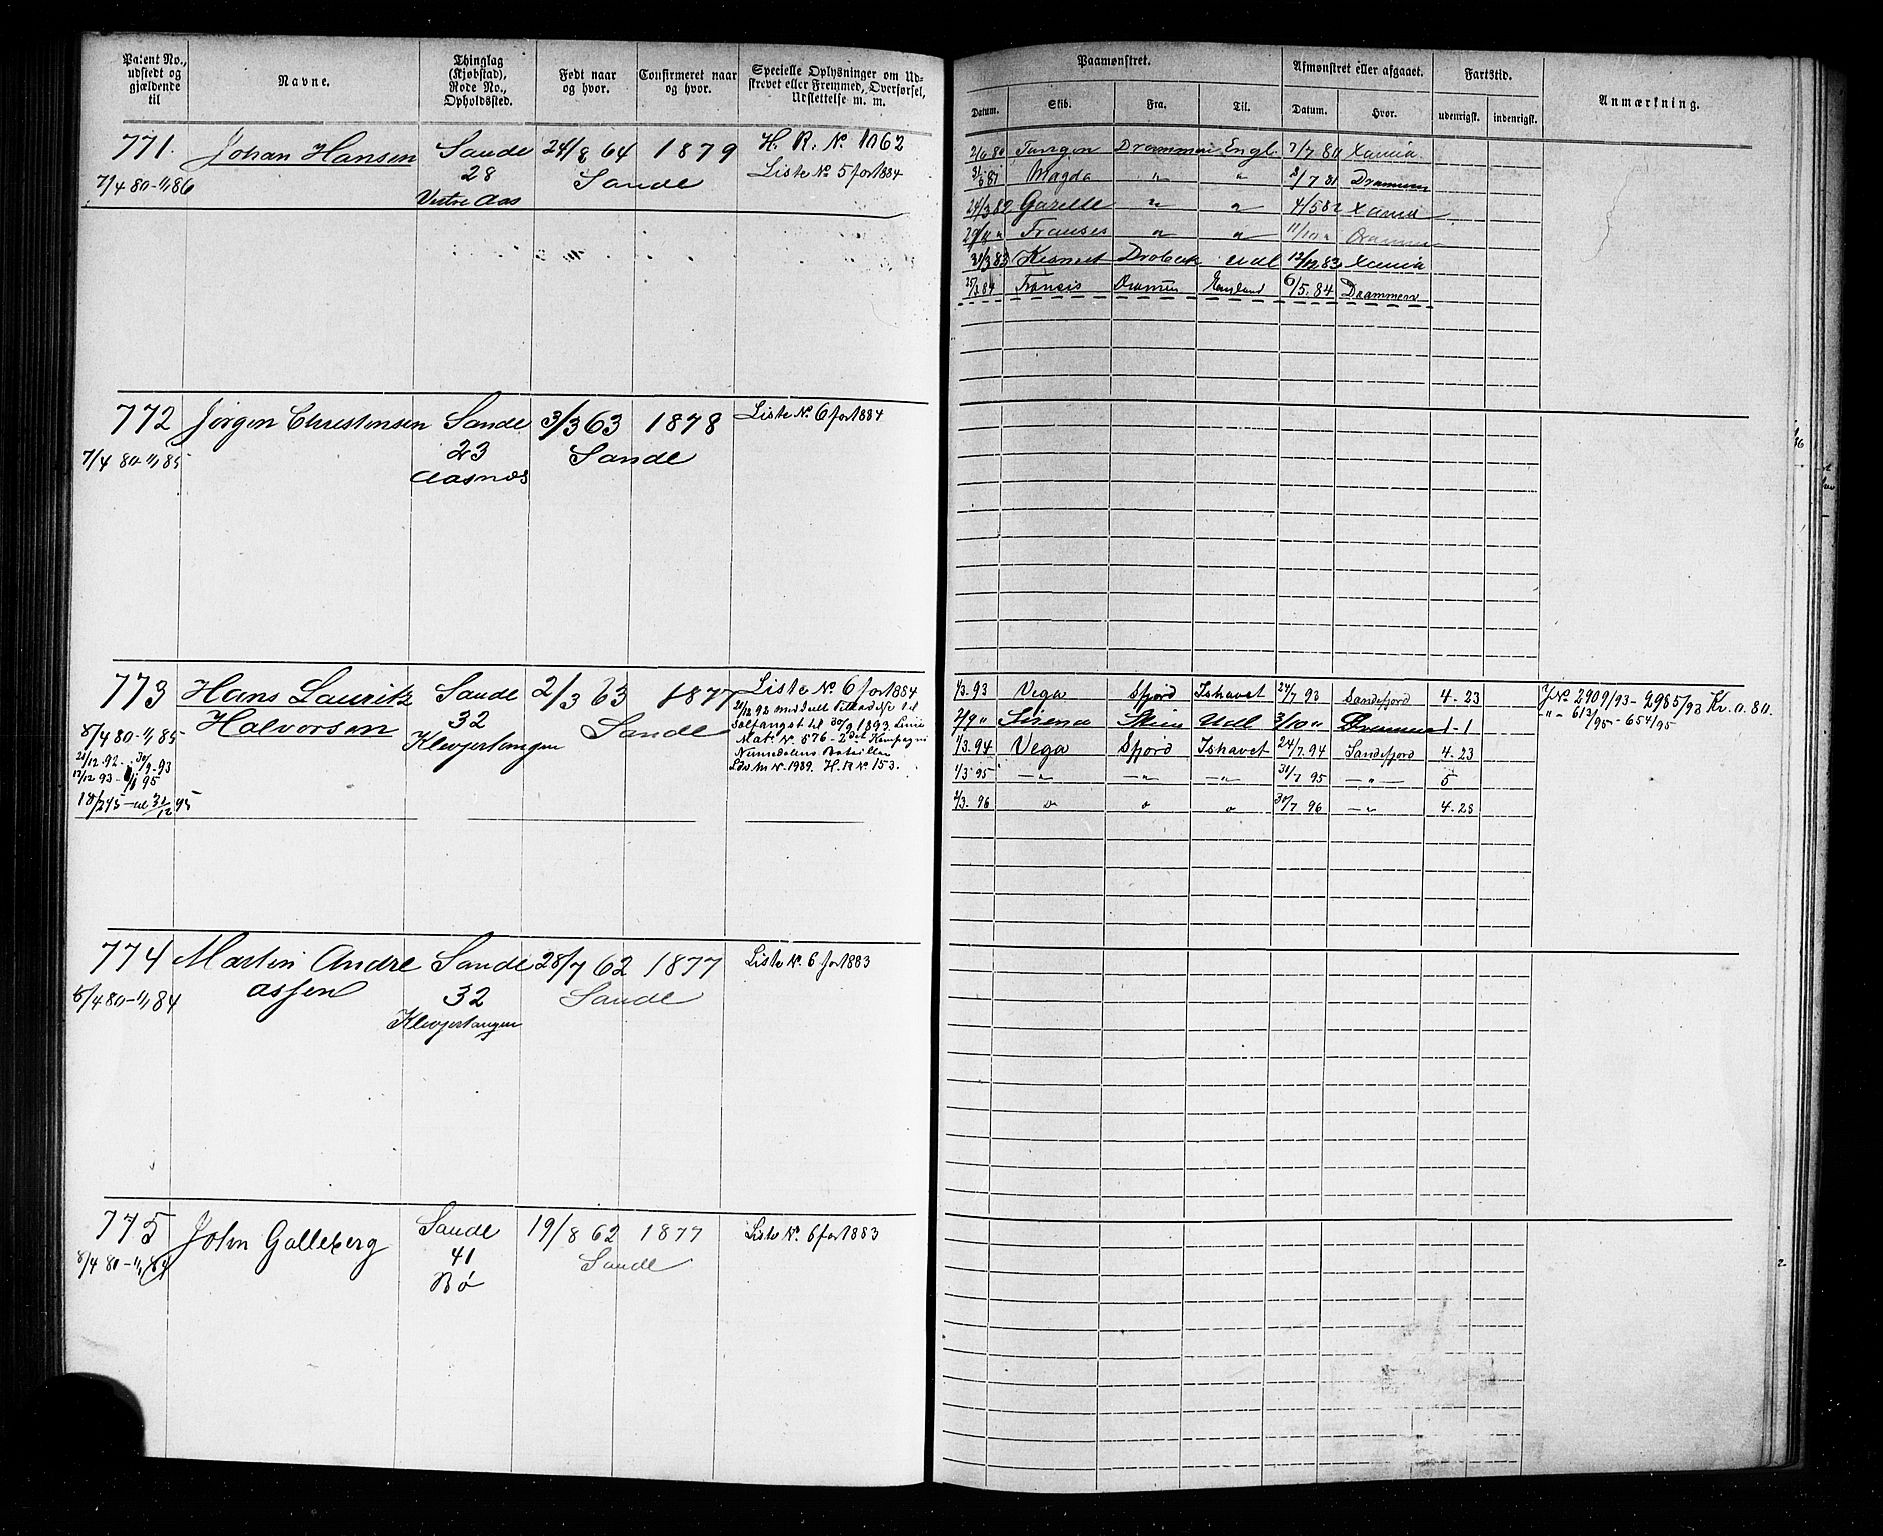 Patent No., udstedt og gjældende til
Navne.
Thinglag (Kjøbstad), Rode No., Opholdssted.
Født naar og hvor.
Confirmeret naar og hvor.
Specielle Oplysninger om Udskrevet eller Fremmed, Overførsel, Udslettelse m. m.
Paamønstret.
Afmønstret eller afgaaet.
Fartstid.
Anmærkning.
Datum. Skib. Fra. Til. Datum. Hvor. udenrigsk. indenrigsk.
771. Johan Hansen Sande 24/8 64 1879 H. R. No 1062
7/4 80-1/1 86 28 Sande Liste No 5 for 1884
Vestre Aas
Tangen Drammen Engl. 7/7 80 Xania
Magda " " 2/7 81 Drammen
24/3 82 Gazelle " " 4/5 82 Xania
Franses " " 11/10 " Drammen
31/3 83 Drobak Udl 12/12 83 Xania
25/3 84 Fransis Drammen England 6/5. 84 Drammen
772 Jørgen Christensen Sande 3/3 63 1878 Liste No. 6 for 1884
7/4 80-1/1 85 23 Sande
Aasnes
773 Hans Lauritz Sande 2/3 63 1877 Liste No 6 for 1884
Halvorsen 32 Sande
8/4 80-1/1 85 Klevjertangen
21/12 92 - 30/9 93
12/12 93 - 1/1 95
21/12 92 med Tilladelse til
Selfangst til 30/9 1893. Linie
Mats No. 576 - 2den Kompagni
Nummedalens Bataillon
Ldv m No. 1989. H. R No 153.
1/3. 93 Vega Sfjord Ishavet 24/7 93 Sandefjord 4-23
2/9 " Sirena Skien Udl 3/10 " Drammen 1-1
1/3. 94 Vega Sfjord Ishavet 24/7. 94 Sandefjord 4-23
1/3 95 -"- -"- -"- 31/7 95 -"- 5
2/3. 96 " " " 30/7 96 -"- 4-28
J No 2909/93 - 2985/93 Kr. a. 80.
-"- 613/95 - 654/95
774 Martin Andre Sande 28/7 62 1877 Liste No. 6 for 1883
assen 32 Sande
8/4 80-1/1 84 Klevjertangen
775 John Galleberg Sande 19/8 62 1877 Liste No. 6 for 1883
8/4 80-1/1 84 41 Sande
Bø